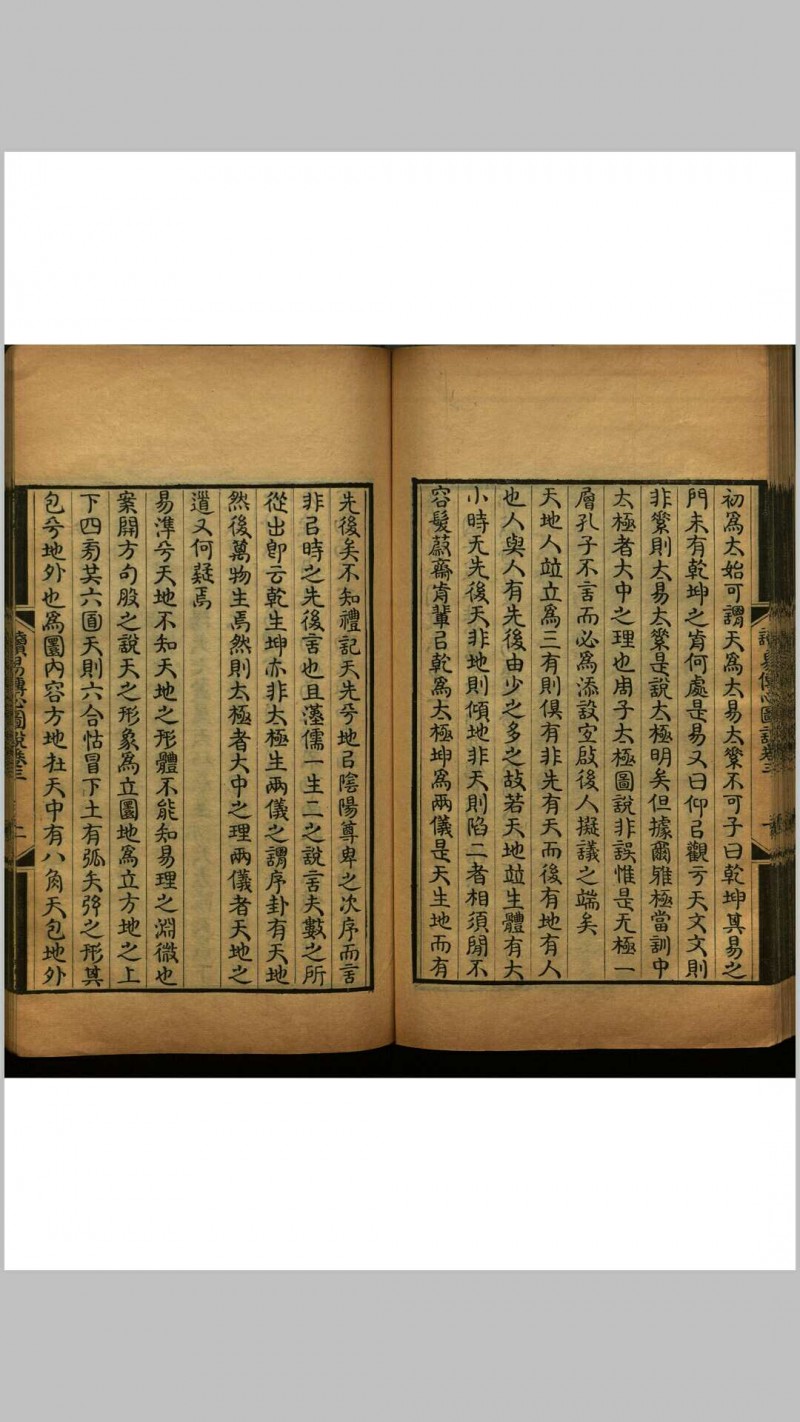 初爲太始可謂天爲太易太𥿄不可子曰乾坤其易之
門未有乾坤之前何處是易又曰仰㠯觀亏天文文則
非𥿄則太易太𥿄是說太極明矣但據爾雅極當訓中
太極者大中之理也周子太極圖說非誤惟是无極一
層孔子不言而必爲添設空啟後人擬議之端矣
天地人竝立爲三有則俱有非先有天而後有地有人
也人與人有先後由少之多之故若天地竝生體有大
小時无先後天非地則傾地非天則陷二者相須閒不
容髮蔚齋肯輩㠯乾爲太極坤爲兩儀是天生地而有
先後矣不知禮記天先兮地㠯陰陽尊卑之次序而言
非㠯時之先後言也且漢儒一生二之說言夫數之所
從出卽云乾生坤亦非太極生兩儀之謂序卦有天地
然後萬物生焉然則太極者大中之理兩儀者天地之
道又何疑焉
易準兮天地不知天地之形體不能知易理之淵微也
案開方句股之說天之形象爲立圜地爲立方地之上
下四旁其六面天則六合怙冒下土有弧矢弧之形其
包兮地外也爲圜內容方地在天中有八角天包地外
讀易傳心圖說卷三 一
讀易傳心圖說卷三 二